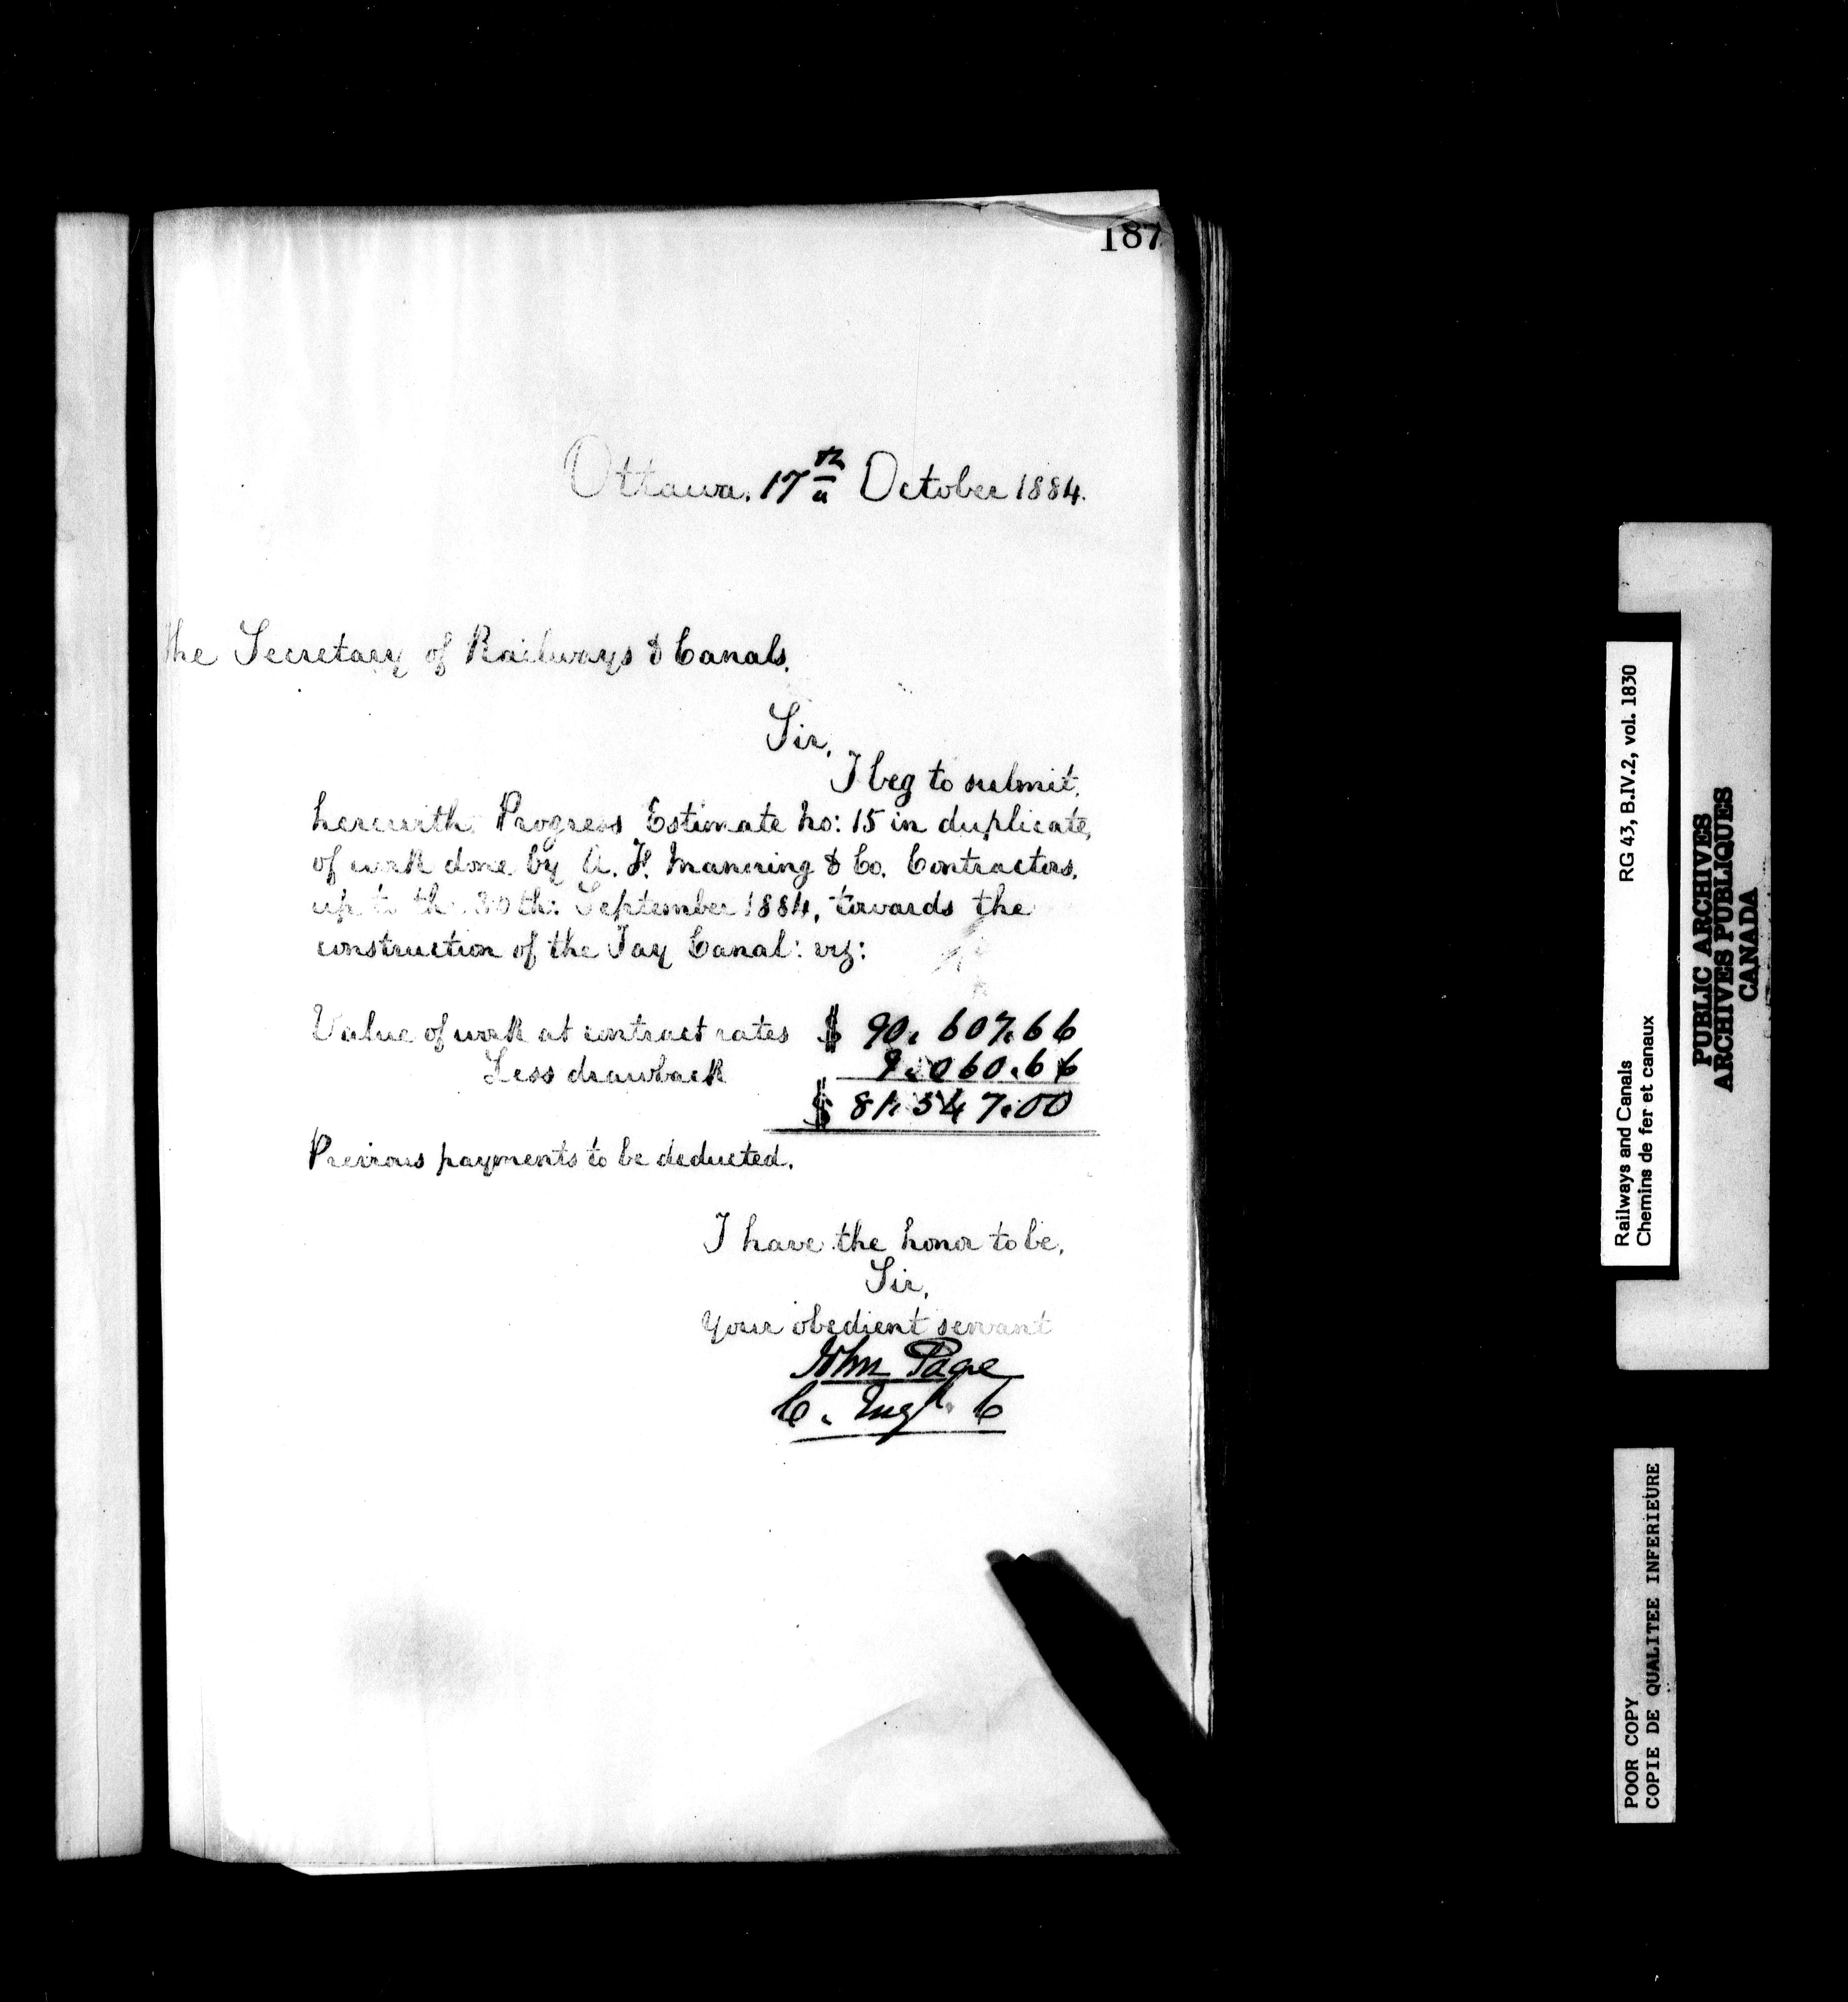 187
Ottawa. 17th October 1884.
The Secretary of Railways & Canals.
Sir,
I beg to submit,
herewith Progress Estimate No: 15 in duplicate,
of work done by A. F. Manning & Co. Contractors,
up to the 30th: September 1884, towards the
construction of the Tay Canal: viz:
Value of work at contract rates $ 90,607.66
Less drawback 9,060.66
$ 81,547.00
Previous payments to be deducted.
I have the honor to be,
Sir,
Your obedient servant
John Page
C. Engr. C
Railways and Canals RG 43, B.IV.2, vol. 1830
Chemins de fer et canaux
PUBLIC ARCHIVES
ARCHIVES PUBLIQUES
CANADA
POOR COPY
COPIE DE QUALITEE INFERIEURE